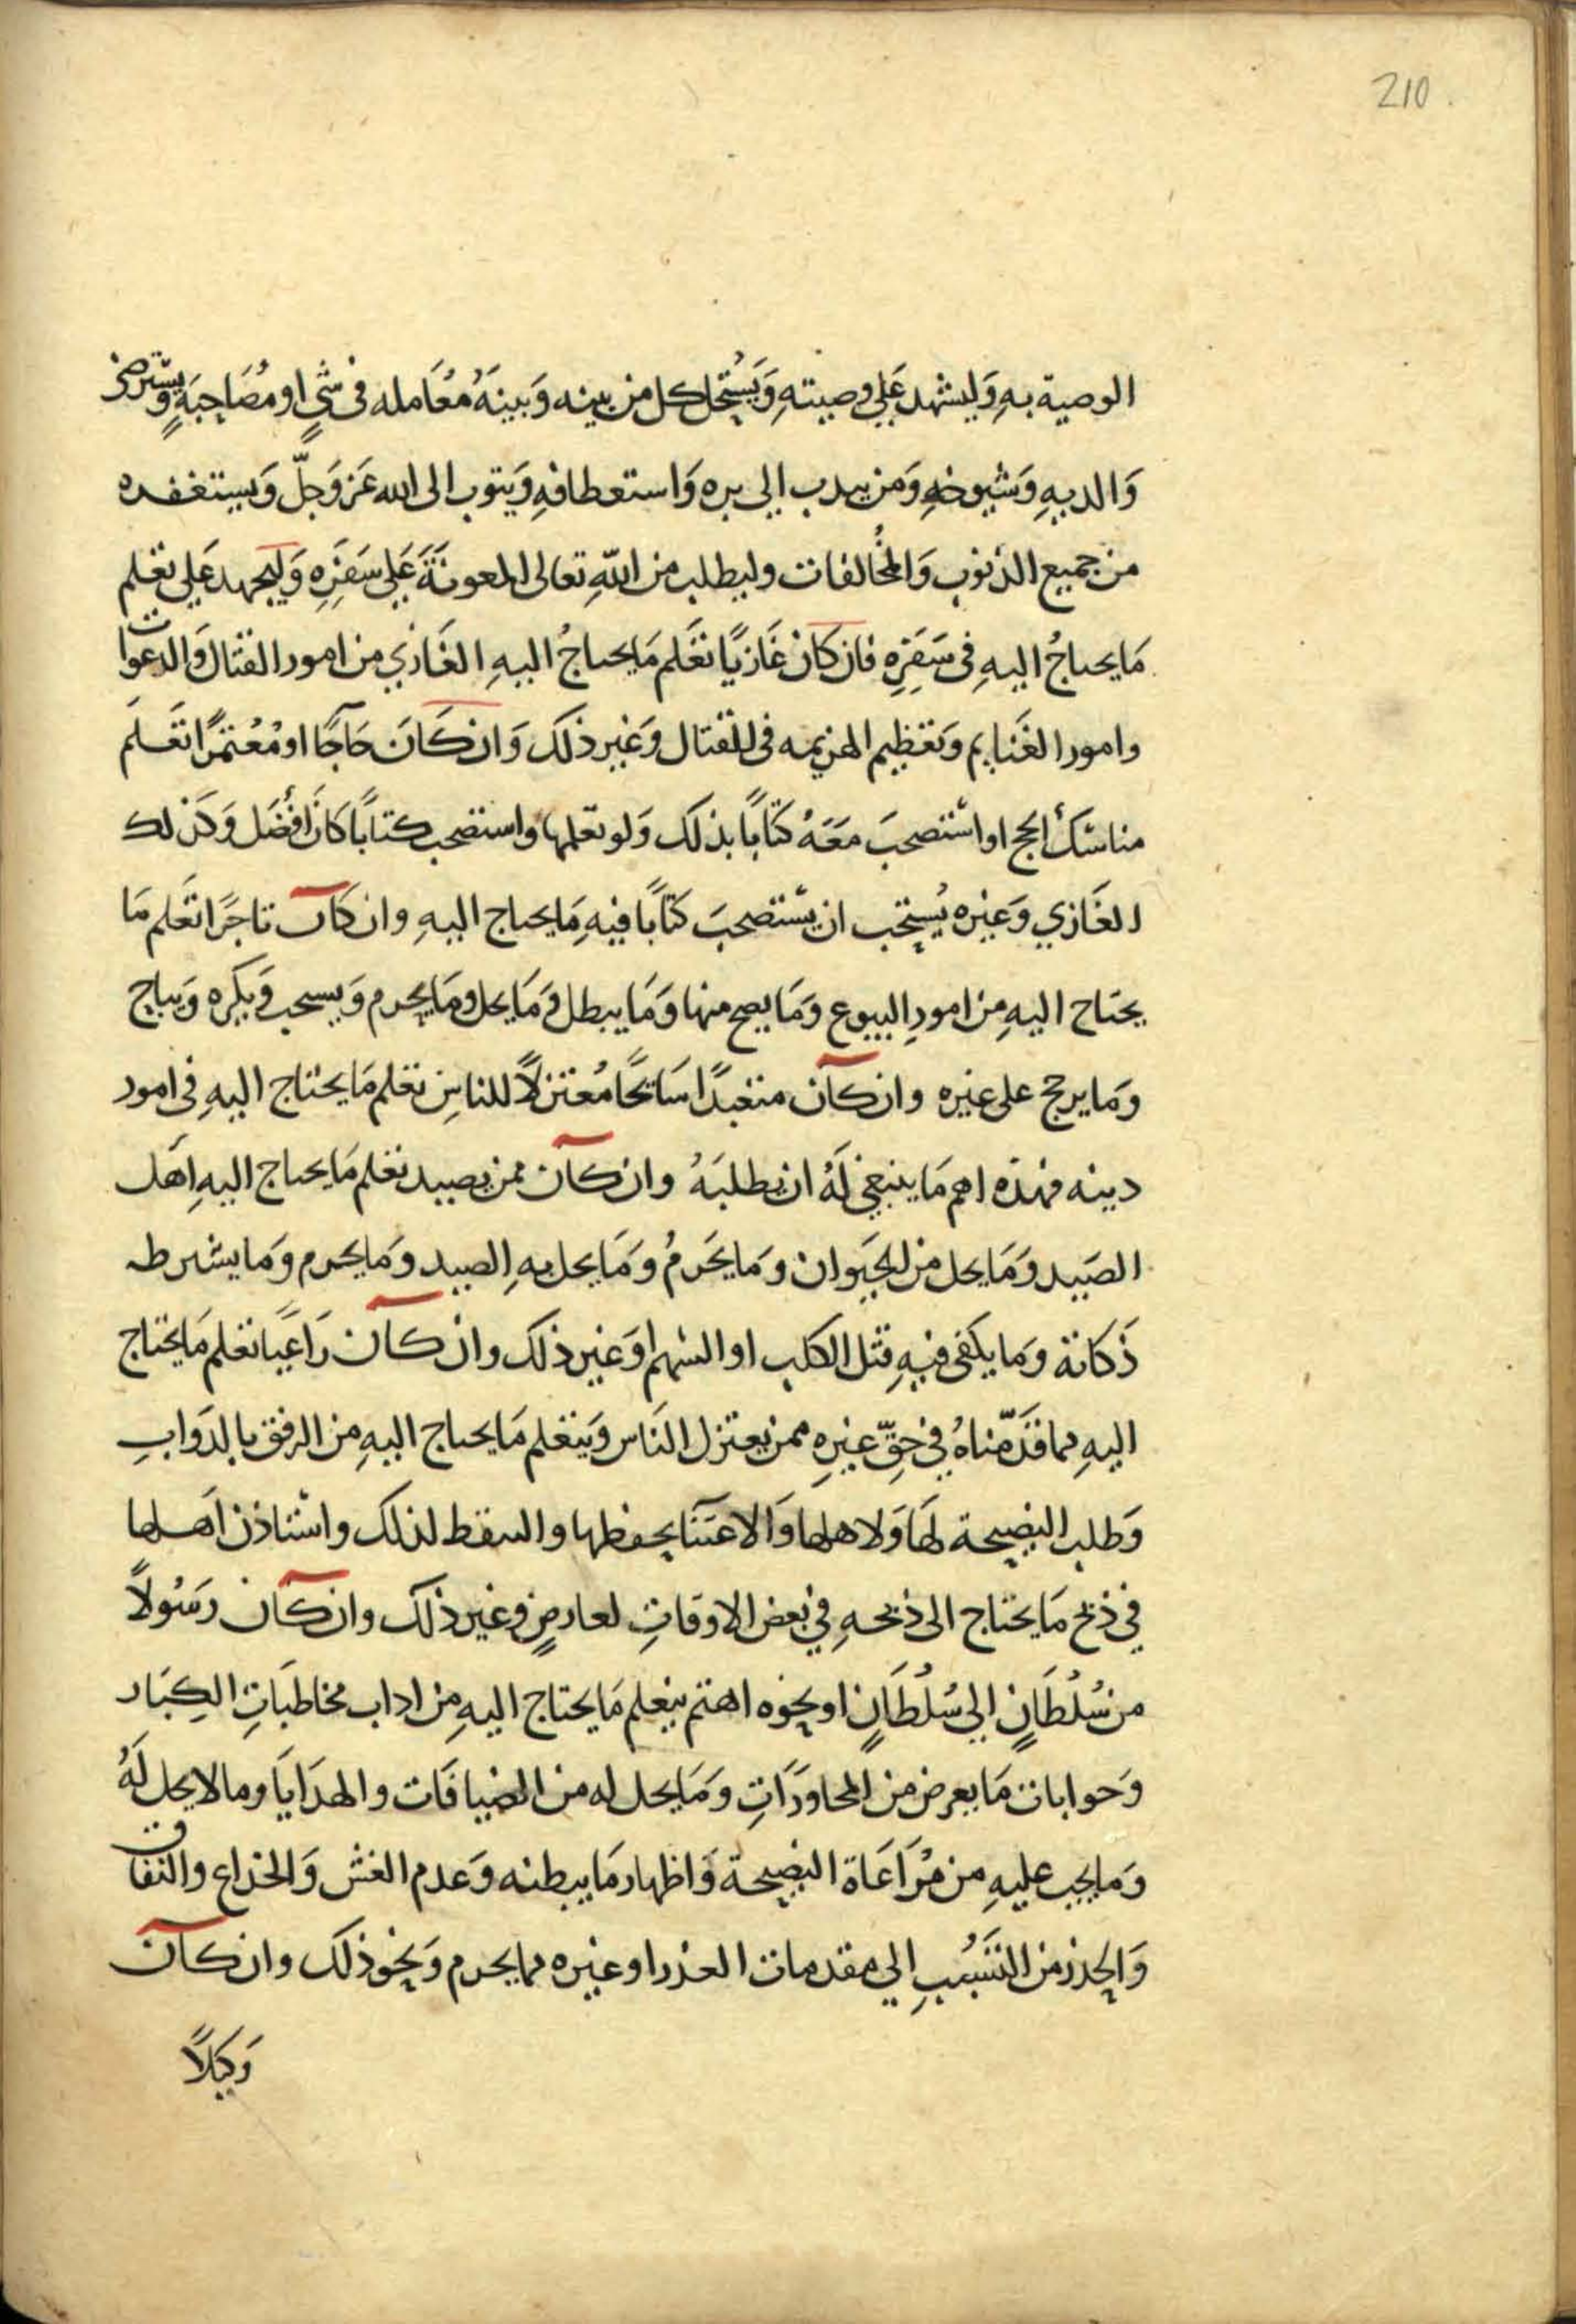 210
الوصية به وليشهد على وصيته ويستحل كل من بينه وبينه معامله فى شي او مصاحبة ويسترض
والديه وشيوخه ومن يندب الي بره واستعطافه ويتوب الى الله عز وجل ويستغفره
من جميع الذنوب والمخالفات وليطلب من الله تعالى المعونة على سفره وليجهد على تعلم
ما يحتاج اليه فى سفره فان كان غازيا تعلم ما يحتاج اليه الغازي من امور القتال والدعوات
وامور الغنايم وتعظيم الهزيمه فى القتال وغير ذلك وان كان حاجا او معتمرا تعلم
مناسك الحج او استصحب معه كتابا بذلك ولو تعلمها واستصحب كتابا كان افضل وكذلك
الغازي وغيره يستحب ان يستصحب كتابا فيه ما يحتاج اليه وان كان تاجرا تعلم ما
يحتاج اليه من امور البيوع وما يصح منها وما يبطل وما يحل وما يحرم ويستحب ويكره ويباح
وما يرجح على غيره وان كان متعبدا سائحا معتزلا للناس تعلم ما يحتاج اليه فى امور
دينه فهذه اهم ما ينبغي له ان يطلبه وان كان ممن يصيد تعلم ما يحتاج اليه اهل
الصيد وما يحل من الحيوان وما يحرم وما يحل به الصيد وما يحرم وما يشرط
ذكاتة وما يكفى فيه قتل الكلب او السهم او غير ذلك وان كان راعيا تعلم ما يحتاج
اليه مما قدمناه في حق غيره ممن يعتزل الناس ويتعلم ما يحتاج اليه من الرفق بالدواب
وطلب النصيحة لها ولاهلها والاعتنا بحفظها والتيقظ لذلك واستاذن اهلها
في ذبح ما يحتاج الى ذبحه في بعض الاوقات لعارض وغير ذلك وان كان رسولا
من سلطان الي سلطان او نحوه اهتم بتعلم ما يحتاج اليه من اداب مخاطبات الكبار
وجوابات ما يعرض من المحاورات وما يحل له من الضيافات والهدايا وما لا يحل له
وما يجب عليه من مراعاة النصيحة واظهار ما يبطنه وعدم الغش والخداع والنفاق
والحذر من التسبب الي مقدمات الغدر او غيره مما يحرم ونحو ذلك وان كان
وكيلا